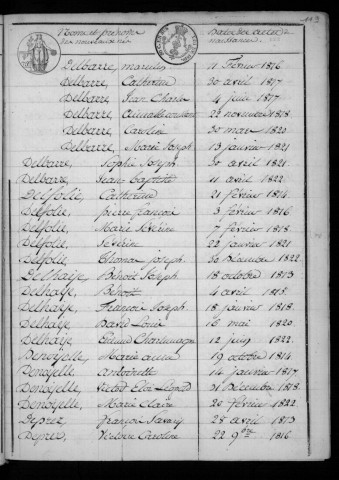 Noms et prénoms des nouveaux nés
Date des actes de naissance
113
Delbarre, 11 février 1816
Delbarre, Catherine 30 avril 1817
Delbarre, Jean Charles 4 juin 1817
Delbarre, 22 novembre 1818
Delbarre, Caroline 30 mars 1820
Delbarre, Marie Joseph 13 janvier 1821
Delbarre, Sophie Joseph 30 avril 1821
Delbarre, Jean baptiste 11 avril 1822
Delfolie, Catherine 21 février 1814
Delfolie, pierre françois 3 février 1816
Delfolie, Marie Séverine 7 février 1818
Delfolie, Séverin 22 janvier 1821
Delfolie, Joseph 30 décembre 1822
Delhaije, Benoit Joseph 18 octobre 1813
Delhaije, Benoit 4 avril 1815
Delhaije, François Joseph 18 janvier 1818
Delhaije, Louis 16 mai 1820
Delhaije, Edouard Charlemagne 12 juin 1822
Denoyelle, Marie anne 19 octobre 1814
Denoyelle, antoinette 14 janvier 1817
Denoyelle, Eloi 31 décembre 1818
Denoyelle, Marie Claire 20 février 1822
Deprez, François Savary 28 avril 1813
Deprez, Victoire Caroline 22 9bre 1816